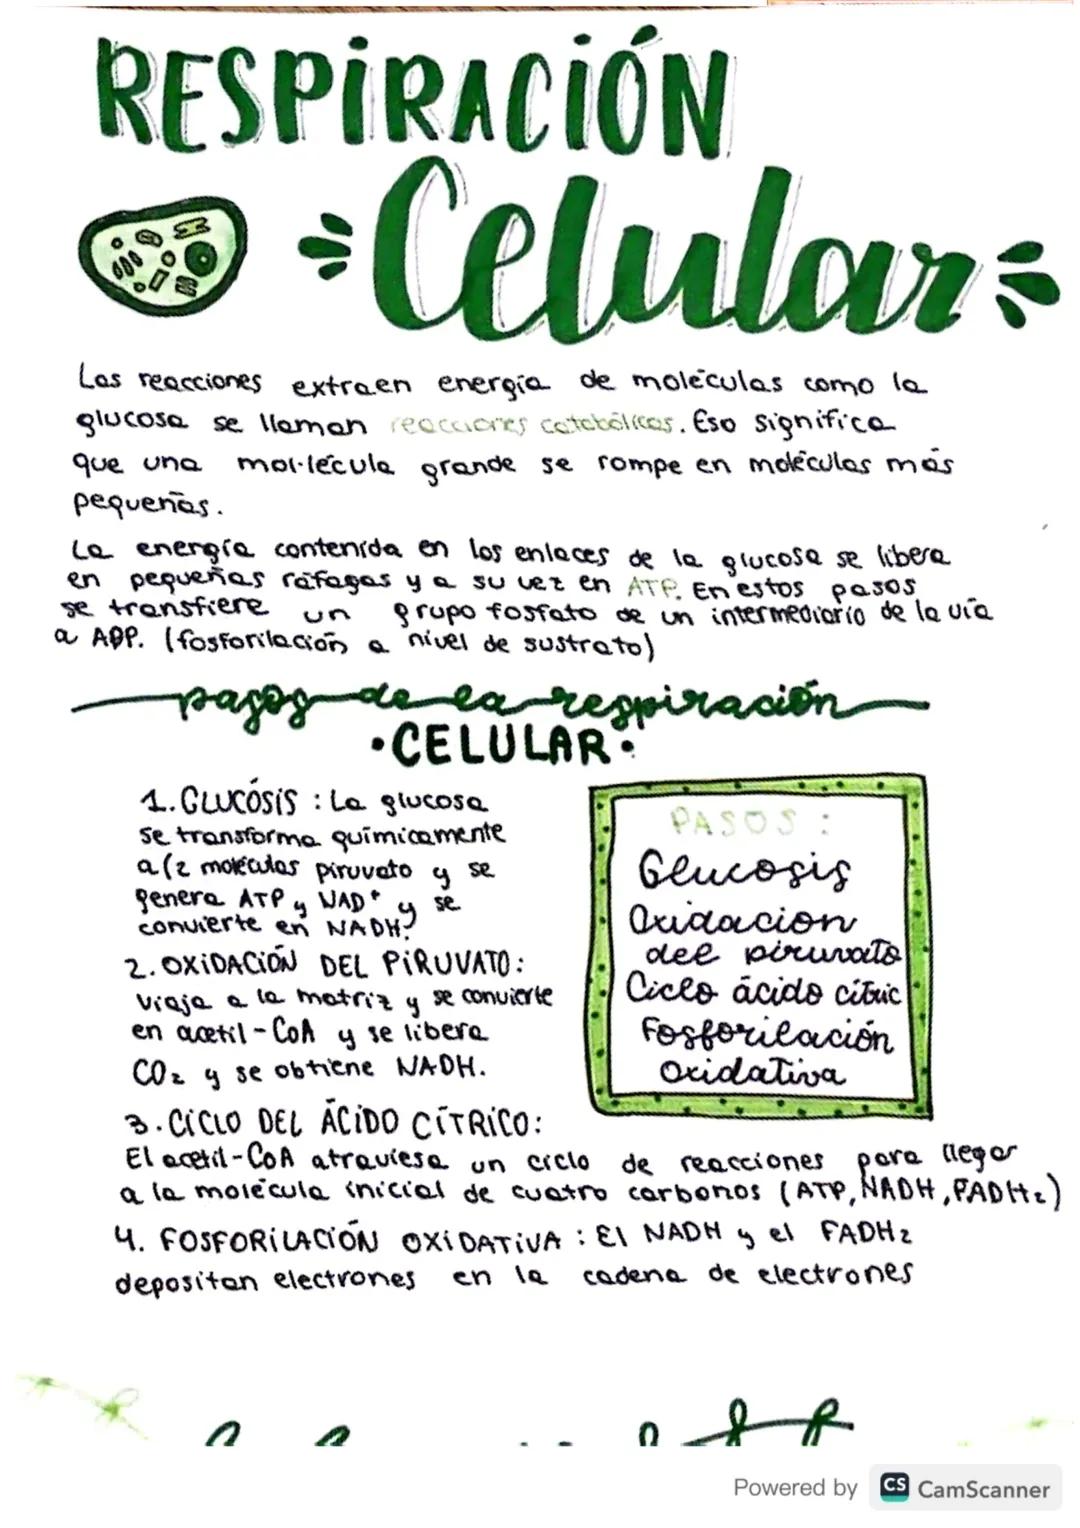 RESPIRACIÓN
Celular
Las reacciones extraen energía de moléculas como la
glucosa se llaman reacciones catabólicas. Eso significa
que una mol·lécula grande se rompe en moléculas más
pequeñas.
La energía contenida en los enlaces de la glucosa se libera
en pequeñas ráfagas y a su vez en ATP. En estos pasos
se transfiere un grupo fosfato de un intermediario de la vía
a ADP. (fosforilación a nivel de sustrato)
pasos de la respiración
·CELULAR·
1. GLUCÓSIS : La glucosa
se transforma químicamente
a (2 moléculas piruvato y se
genera ATP y NAD⁺ y se
convierte en NADH)
2. OXIDACIÓN DEL PIRUVATO:
viaja a la matriz y se convierte
en acetil-CoA y se libera
CO₂ y se obtiene NADH.
PASOS :
Glucosis
Oxidacion
del piruvato
Ciclo ácido cítric
Fosforilación
Oxidativa
3. CICLO DEL ÁCIDO CÍTRICO:
El acetil-CoA atraviesa un ciclo de reacciones para llegar
a la molécula inicial de cuatro carbonos (ATP, NADH, FADH₂)
4. FOSFORILACIÓN OXIDATIVA : El NADH y el FADH₂
depositan electrones en la cadena de electrones
Powered by CS CamScanner